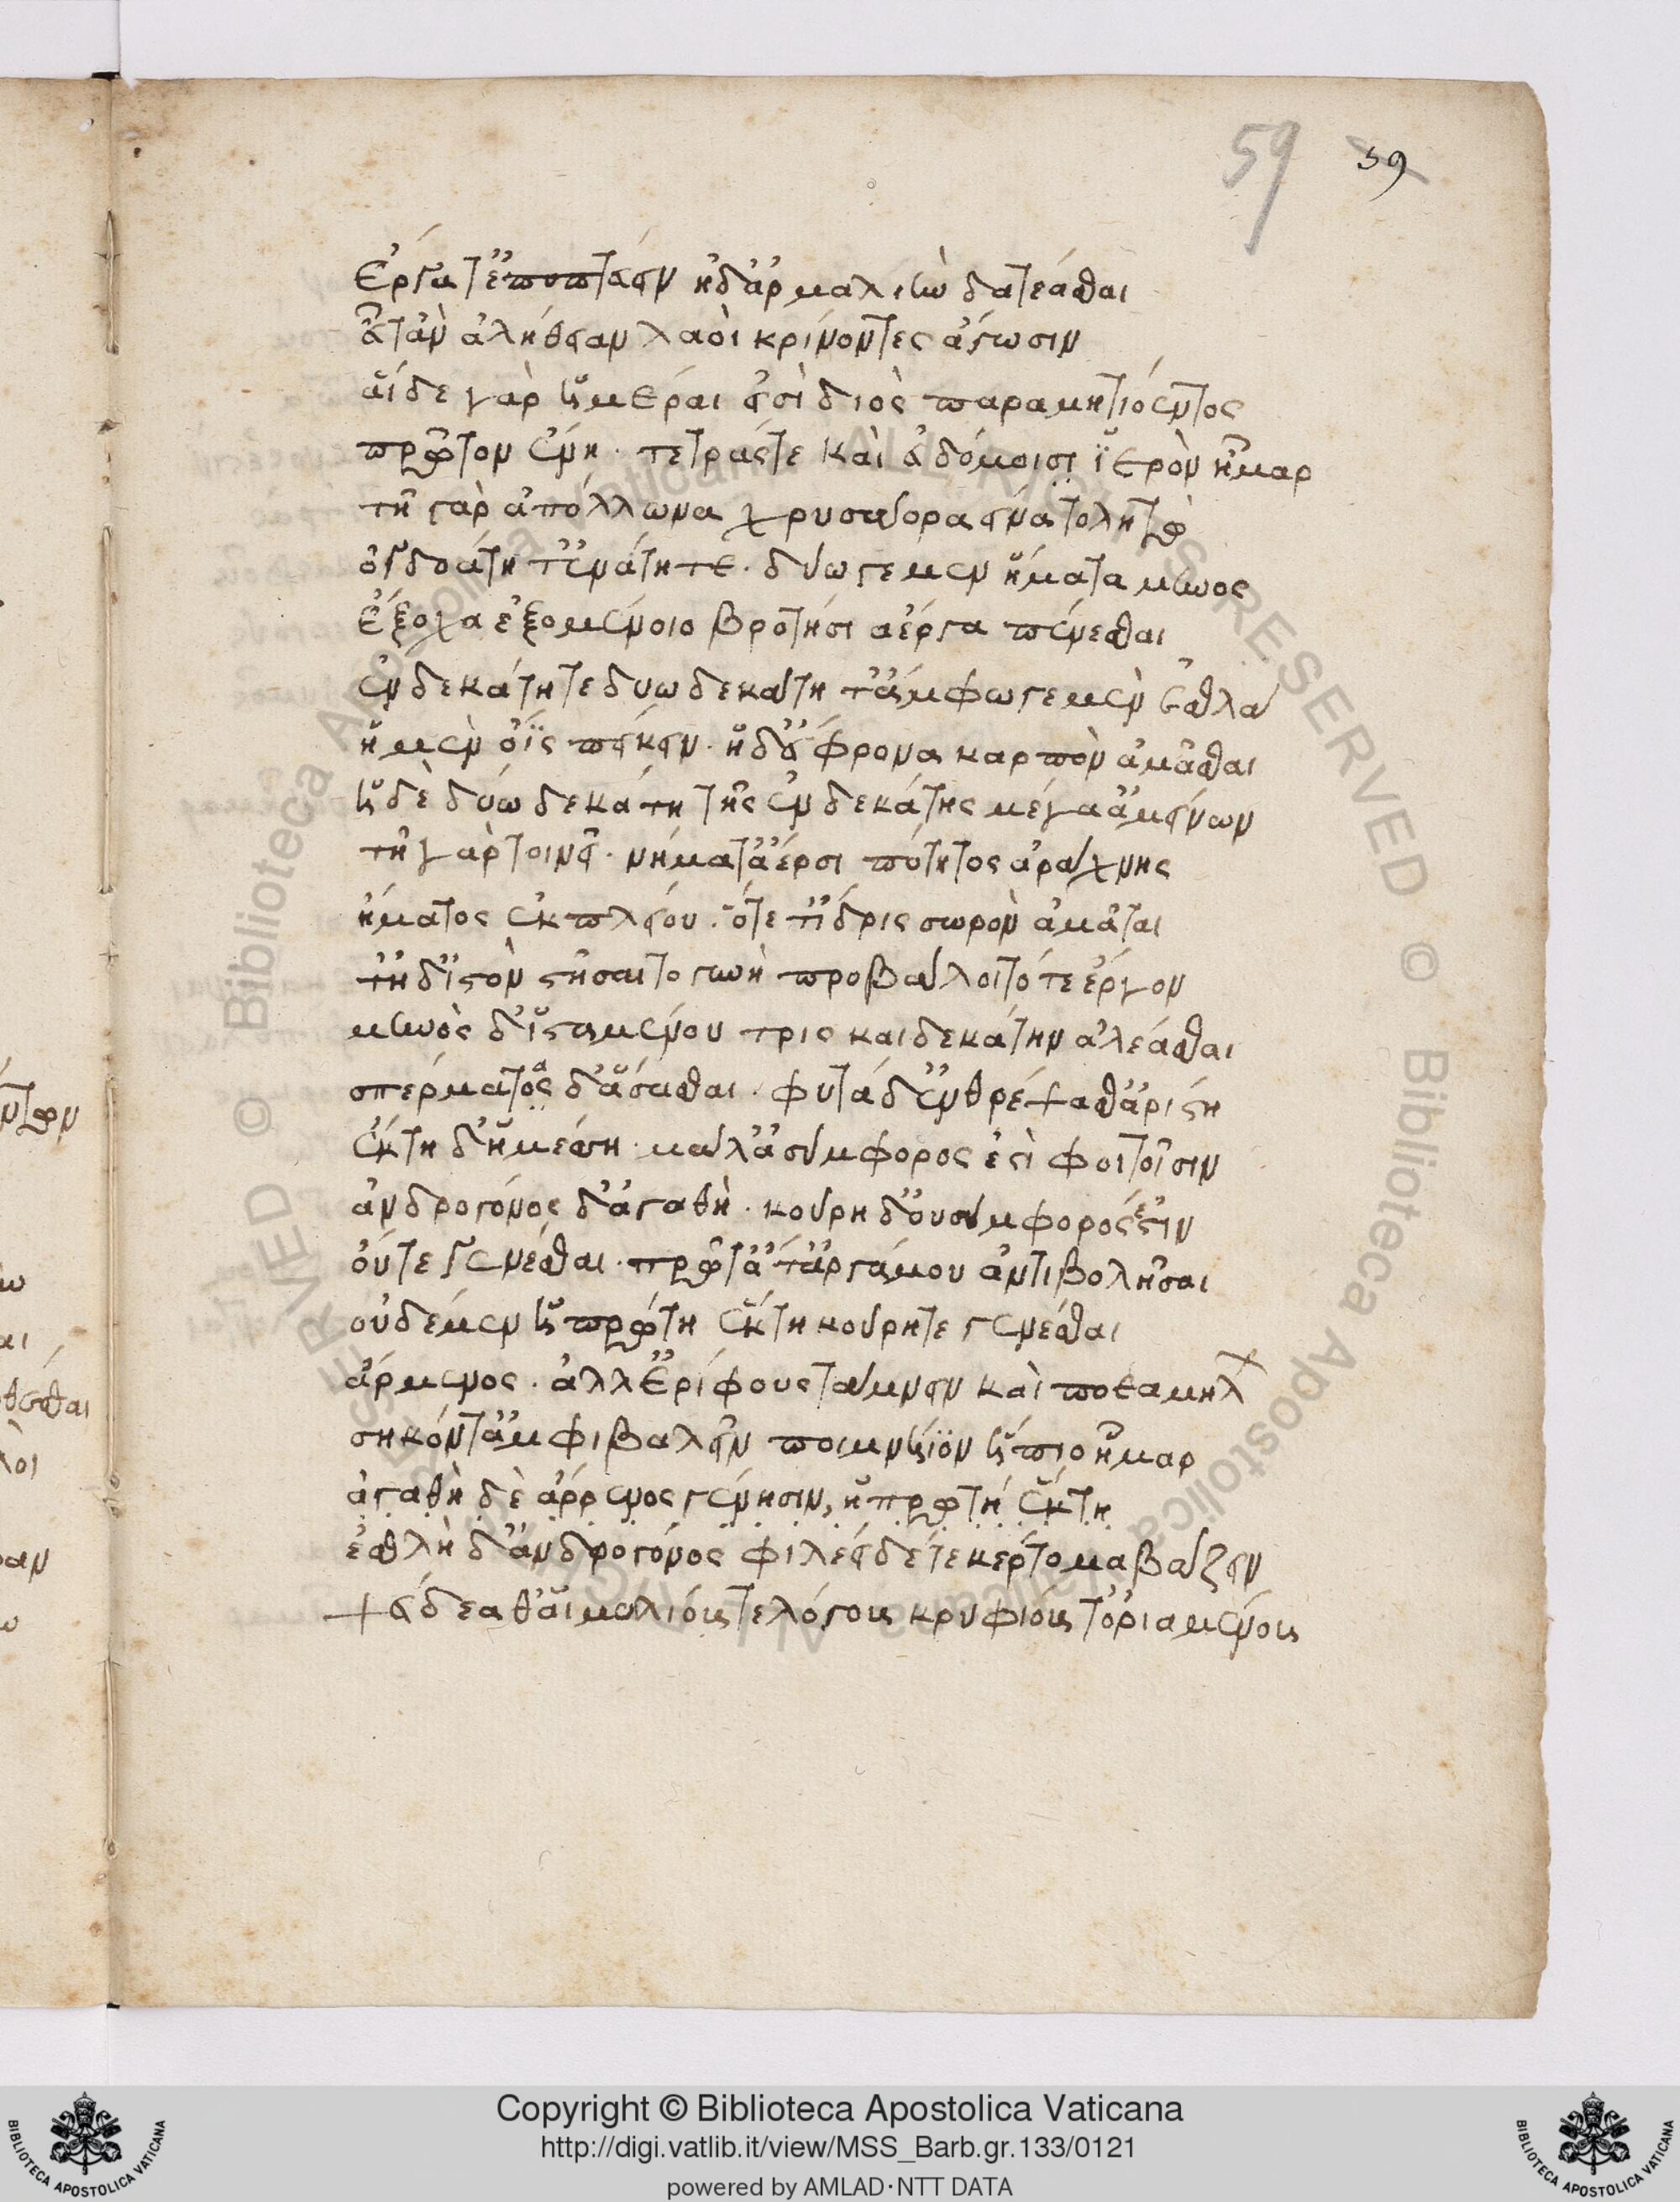 59 59
ἔργατ' ἐποπτεύειν ἠδ' ἁρμαλιὴν δατέασθαι
εὖτ' ἂν ἀληθείαν λαοὶ κρίνοντες ἄγωσιν
αἵδε γὰρ ἡμέραι εἰσὶ διὸς παραμητιόεντος
πρῶτον ἕνη· τετράς τε καὶ ἑβδόμοισι ἱερὸν ἦμαρ
τῇ γὰρ ἀπόλλωνα χρυσάορα γείνατο λητώ
ὀγδοάτη τ' ἐνάτη τε· δύω γε μὲν ἤματα μηνὸς
ἔξοχα ἐξομένοιο βροτήσι α ἔργα πένεσθαι
ἑνδεκάτη τε δυωδεκάτη τ' ἄμφω γε μὲν ἐσθλά
ἡ μὲν ὄϊς πείκειν· ἡ δ' εὔφρονα καρπὸν ἀμᾶσθαι
ἡ δὲ δυωδεκάτη τῆς ἑνδεκάτης μέγ' ἀμείνων
τῇ γάρ τοι νεῖ· νήματ' ἀέρσι πότητος ἀράχνης
ἤματος ἐκ πλείου· ὅτε τ' ἴδρις σωρὸν ἀμᾶται
τῇ δ' ἱστὸν στήσαιτο γυνὴ προβάλλοιτό τε ἔργον
μηνὸς δ' ἱσταμένου τρισκαιδεκάτην ἀλέασθαι
σπέρματος ἄρξασθαι· φυτὰ δ' ἐνθρέψασθ' ἀρίστη
ἕκτη δ' ἡ μέσση μάλ' ἀσύμφορος ἐστὶ φυτοῖσιν
ἀνδρογόνος δ' ἀγαθή· κούρη δ' οὐ σύμφορός ἐστιν
οὔτε γενέσθαι πρῶτ' οὔτ' ἂρ γάμου ἀντιβολῆσαι
οὐδὲ μὲν ἡ πρώτη ἕκτη κούρη τε γενέσθαι
ἄρμενος· ἀλλ' ἐρίφους τάμνειν καὶ πώεα μήλ
σηκόν τ' ἀμφιβαλεῖν ποιμνήϊον ἤπιον ἦμαρ
ἀγαθὴ δὲ ἄρρενος γένησιν, ἡ πρώτη ἕκτη
ἐσθλὴ δ' ἀνδρογόνος φιλέει δέ τε κέρτομα βάζειν
ψεύδεα θ' αἱμυλίους τε λόγους κρυφίους τ' ὀριαμένους
Copyright © Biblioteca Apostolica Vaticana
http://digi.vatlib.it/view/MSS_Barb.gr.133/0121
powered by AMLAD·NTT DATA